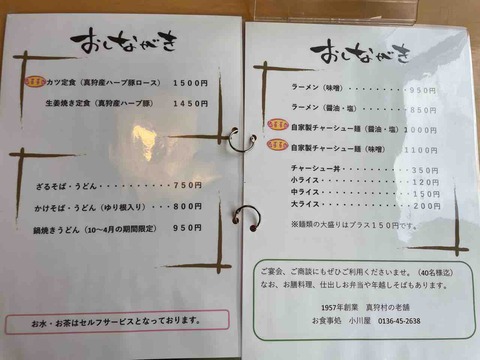 おしながき
カツ定食（真狩産ハーブ豚ロース） 1500円
生姜焼き定食（真狩産ハーブ豚） 1450円
ざるそば・うどん・・・・・・・750円
かけそば・うどん（ゆり根入り）・・・800円
鍋焼きうどん（10～4月の期間限定） 950円
お水・お茶はセルフサービスとなっております。
おしながき
ラーメン（味噌）・・・・・・・・・950円
ラーメン（醤油・塩）・・・・・・・850円
自家製チャーシュー麺（醤油・塩）1000円
自家製チャーシュー麺（味噌） 1100円
チャーシュー丼・・・・・・・・・350円
小ライス・・・・・・・・・・・・120円
中ライス・・・・・・・・・・・・150円
大ライス・・・・・・・・・・・・200円
※麺類の大盛りはプラス150円です。
ご宴会、ご商談にもぜひご利用くださいませ。（40名様迄）
なお、お膳料理、仕出しお弁当や年越しそばもあります。
1957年創業 真狩村の老舗
お食事処 小川屋 0136-45-2638